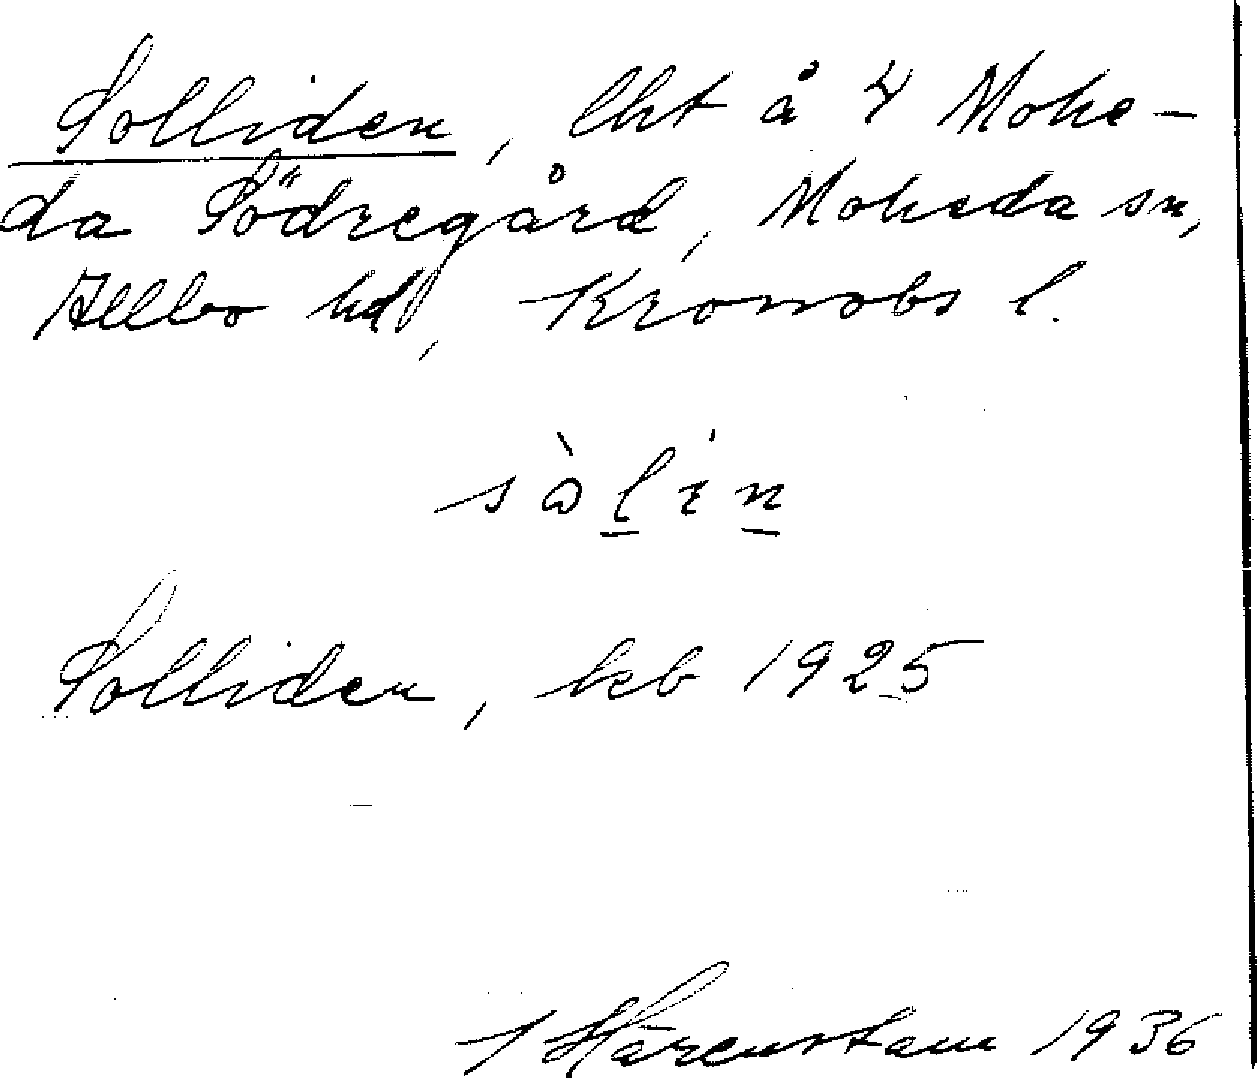 Solliden, lht å 4 Mohe-
da Södregård, Moheda sn,
Allbo hd, Kronobs l.
sòlin
Solliden, kb 1925
Härenstam 1936